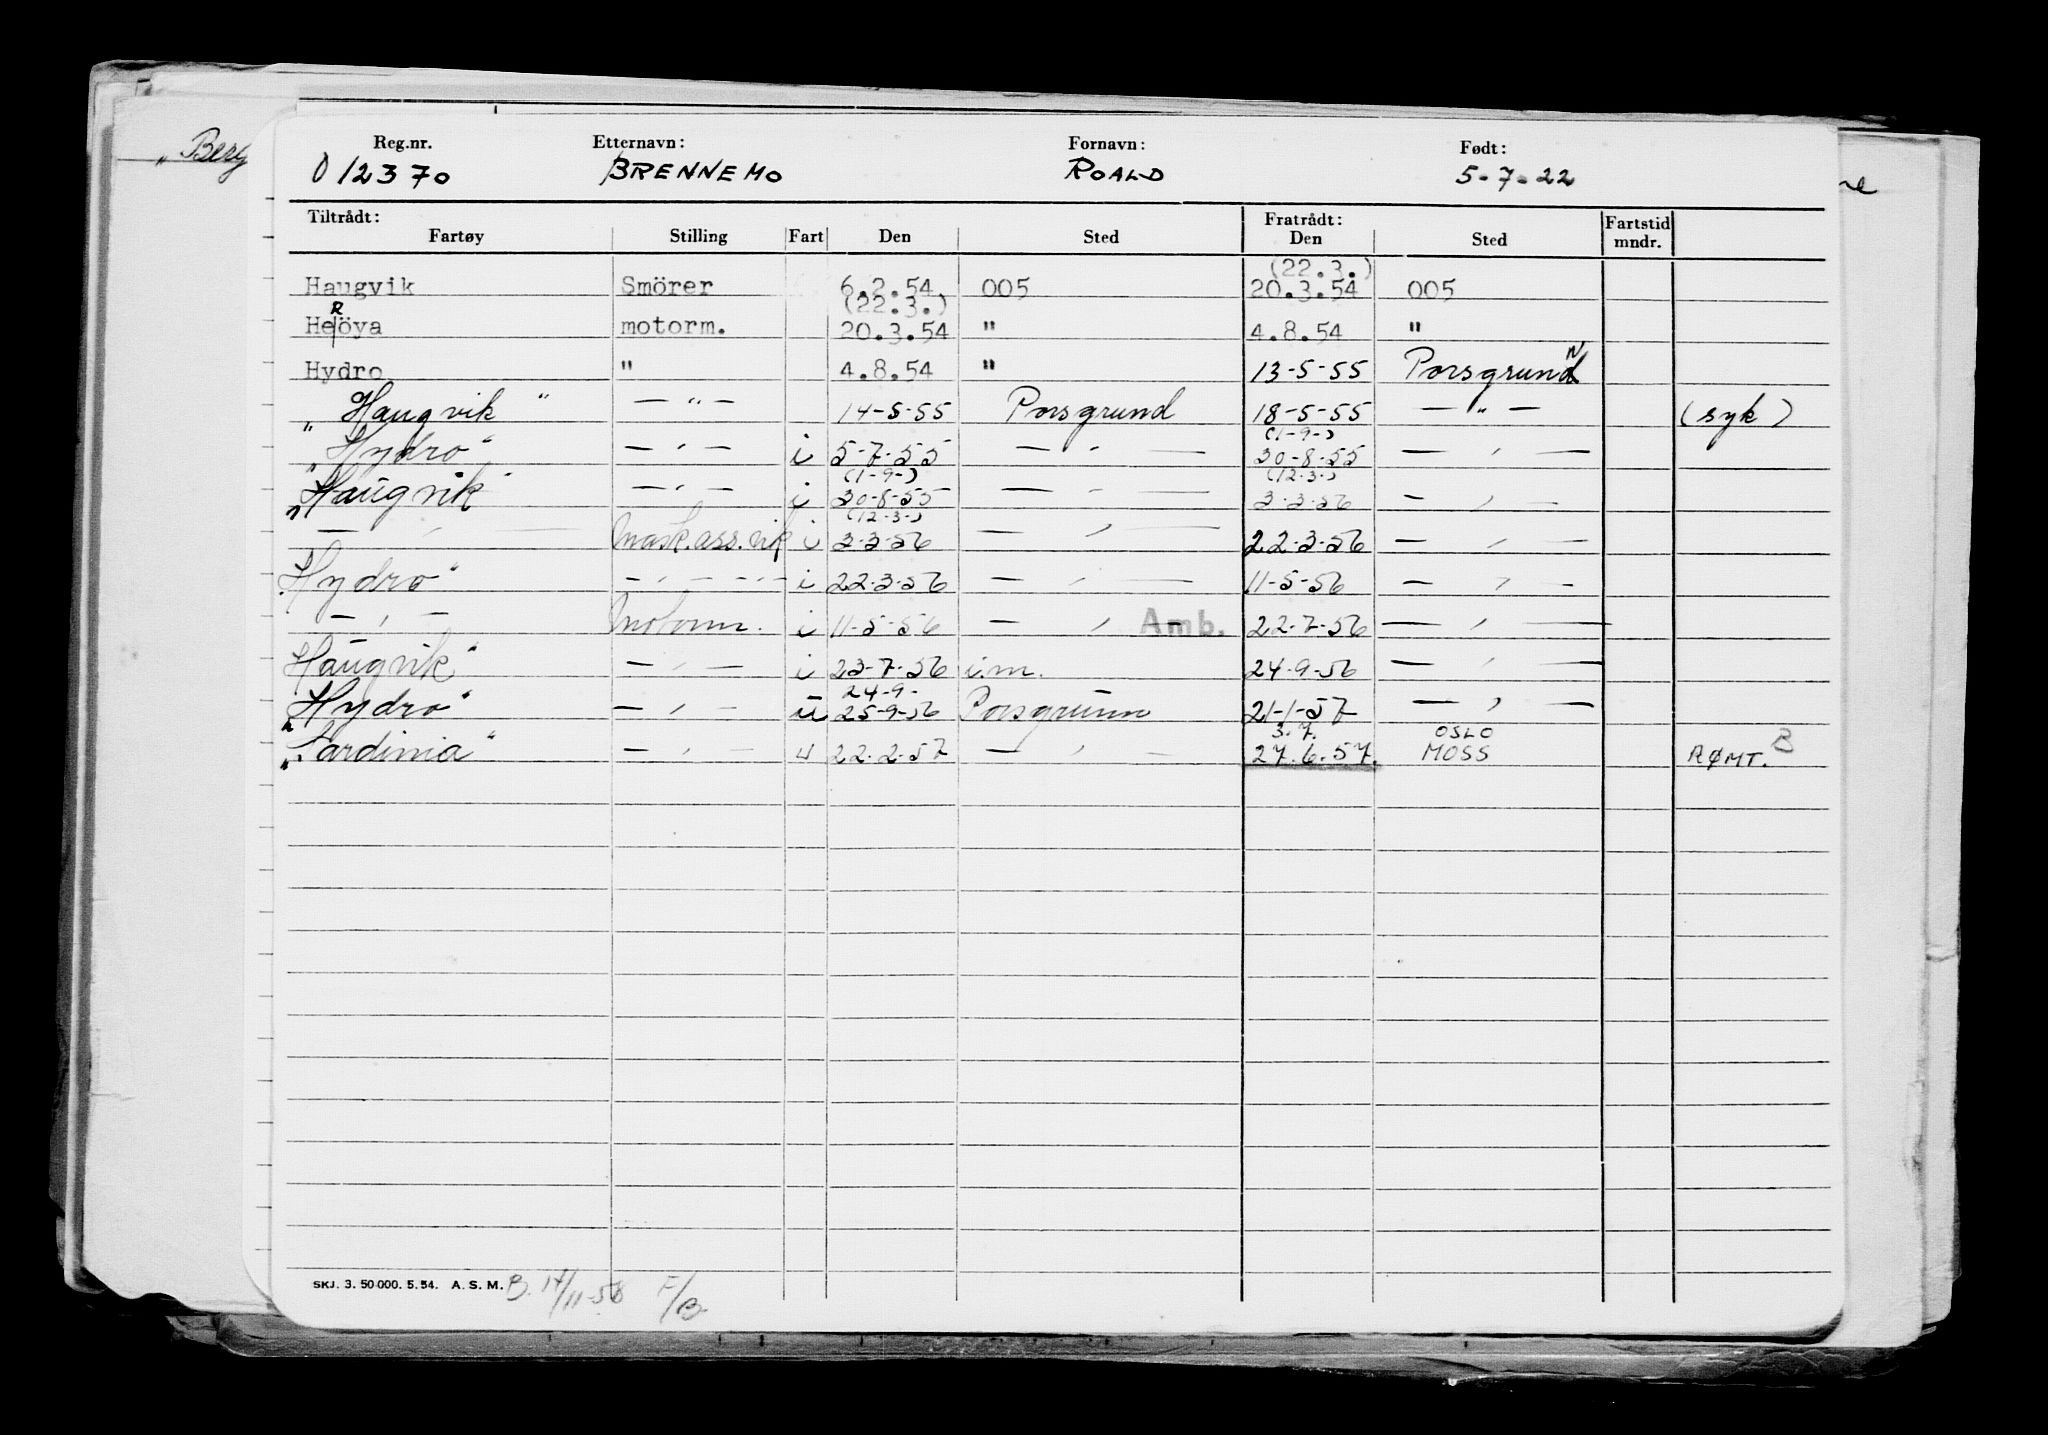 „Berg
Reg.nr. Etternavn: Fornavn: Født:
012370 BRENNEMO ROALD 5-7-22
Tiltrådt: Fratrådt: Fartstid
Fartøy Stilling Fart Den Sted Den Sted mndr.
(22.3.)
Haugvik Smörer 6.2.54 005 20.3.54 005
R (22.3.)
Heöya motorm. 20.3.54 " 4.8.54 "
Hydro " 4.8.54 " 13-5-55 Porsgrunn
„Haugvik" — " — 14-5-55 Porsgrund 18-5-55 — " — (syk)
(1-9-)
„Hydro" — " — i 5-7-55 — " — 30-8-55 — " —
(1-9-) (12-3-)
„Haugvik" — " — i 30-8-55 — " — 3-3-56 — " —
(12-3-)
— " — Mask.ass.vik i 3-3-56 — " — 22-3-56 — " —
Hydro" — " — i 22-3-56 — " — 11-5-56 — " —
— " — Motorm. i 11-5-56 — " — Amb. 22-7-56 — " —
Haugvik" — " — i 23-7-56 i.m. 24-9-56 — " —
24-9-
„Hydro" — " — u 25-9-56 Porsgrunn 21-1-57 — " —
3.7. OSLO
„Sardinia" — " — u 22-2-57 — " — 27.6.57. MOSS RØMT. B
SKJ. 3. 50 000. 5. 54. A. S. M. B. 17/11-58 F/B.